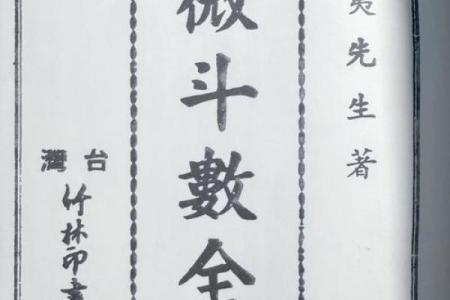 夷先生著
微斗數全
台灣
竹林印書